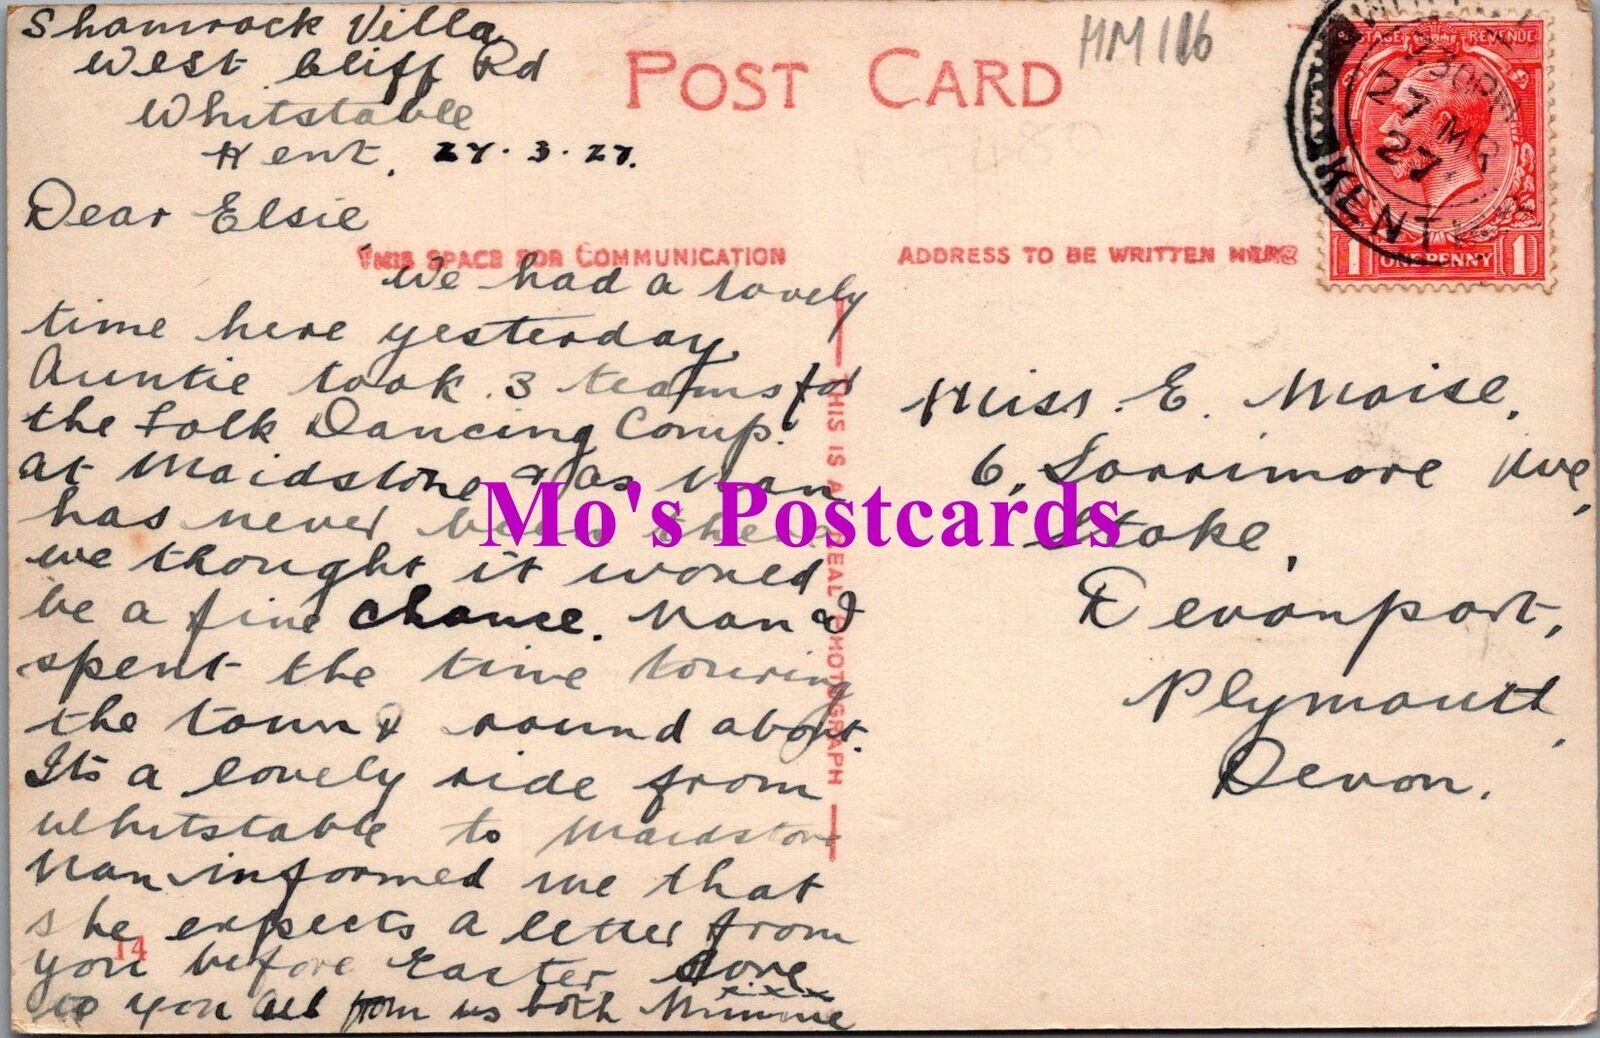 Shamrock Villa
West Cliff Rd
Whitstable
Kent, 27.3.27.
POST CARD
HM 116
POSTAGE REVENUE
30PM
27 MR
27
KENT
1 ONE PENNY 1
Dear Elsie
THIS SPACE FOR COMMUNICATION
ADDRESS TO BE WRITTEN HERE
We had a lovely
time here yesterday
Auntie took 3 teams for
the Folk Dancing Comp.
at Maidstone & as Nan
has never been there
we thought it would
be a fine chance. Nan & I
spent the time touring
the town & round about.
Its a lovely ride from
Whitstable to Maidstone
Nan informed me that
she expects a letter from
you before Easter Love
to you all from us both Minnie
x.x.x.x
14
THIS IS A REAL PHOTOGRAPH
Miss. E. Moise,
6, Lorrimore Ave,
Stoke,
Devonport,
Plymouth,
Devon.
Mo's Postcards